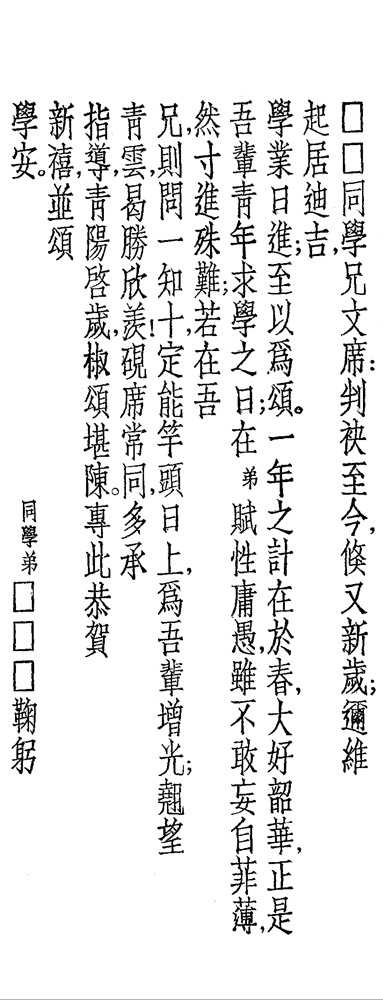 □□同學兄文席：判袂至今，倏又新歲；邇維
起居迪吉，
學業日進；至以爲頌。一年之計在於春，大好韶華，正是
吾輩青年求學之日；在弟賦性庸愚，雖不敢妄自菲薄，
然寸進殊難；若在吾
兄，則問一知十，定能竿頭日上，爲吾輩增光；翹望
青雲，曷勝欣羨！硯席常同，多承
指導，青陽啓歲，椒頌堪陳。專此恭賀
新禧，並頌
學安。
同學弟□□□鞠躬